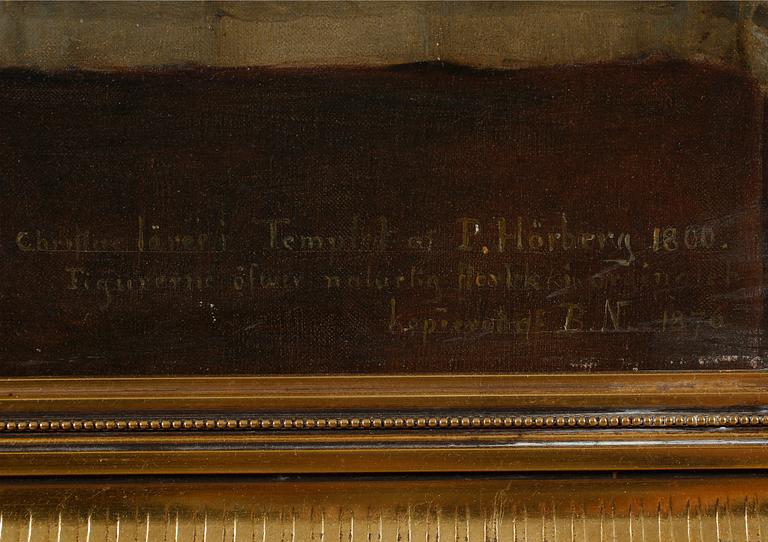 Christus lärer i Templet af P. Hörberg 1800.
Figurerne öfwer naturlig
kopierad af B.N. 1876